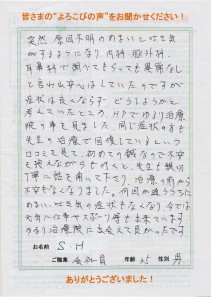 皆さまの"よろこびの声"をお聞かせください！
突然、原因不明のめまいと吐き気
がするようになり、内科・脳外科・
耳鼻科で調べてもらっても異常なし
と言われ安心はしていたのですが
症状は良くならず、どうしようかと
考えていたところ、HPでゆるり治療
院の事を見ました。同じ症状の方も
先生の治療で回復しているという
口コミを見て、初めての鍼なので不安
を抱えながら行くと、先生も親切
丁寧に話を聞いて下さり、治療の前から
不安もなくなりました。何回か通ううちに
めまい、吐き気の症状もなくなり今では
元気に仕事やスポーツ等も出来ています
ゆるり治療院に出会えて良かったです
お名前 S・H
ご職業 会社員 年齢 45 性別 男
ありがとうございました！